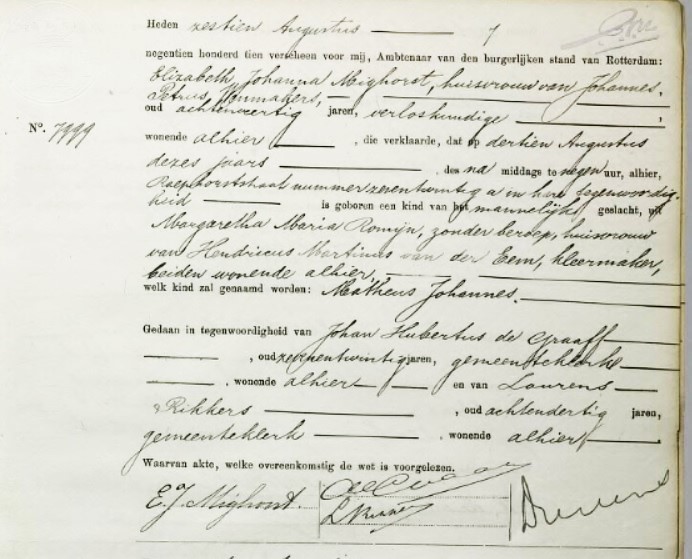 Heden zestien Augustus
negentien honderd tien verscheen voor mij, Ambtenaar van den burgerlijken stand van Rotterdam:
Elizabeth Johanna Mighorst, huisvrouw van Johannes,
Petrus
oud achtenveertig jaren, verloskundige,
No. 7999
wonende alhier, die verklaarde, dat op dertien Augustus
dezes jaars, des na middags te negen uur, alhier,
nummer zevenentwintig a in hare tegenwoordig-
heid is geboren een kind van het mannelijk geslacht, uit
Margaretha Maria Romijn, zonder beroep, huisvrouw
van Hendricus Martinus van der Eem, kleermaker,
beiden wonende alhier,
welk kind zal genaamd worden: Matheus Johannes.
Gedaan in tegenwoordigheid van Johan Hubertus de Graaff
, oud zevenentwintig jaren, gemeenteklerk
, wonende alhier en van Lourens
Rikkers, oud achtendertig jaren,
gemeenteklerk, wonende alhier.
Waarvan akte, welke overeenkomstig de wet is voorgelezen.
E.J. Mighorst.